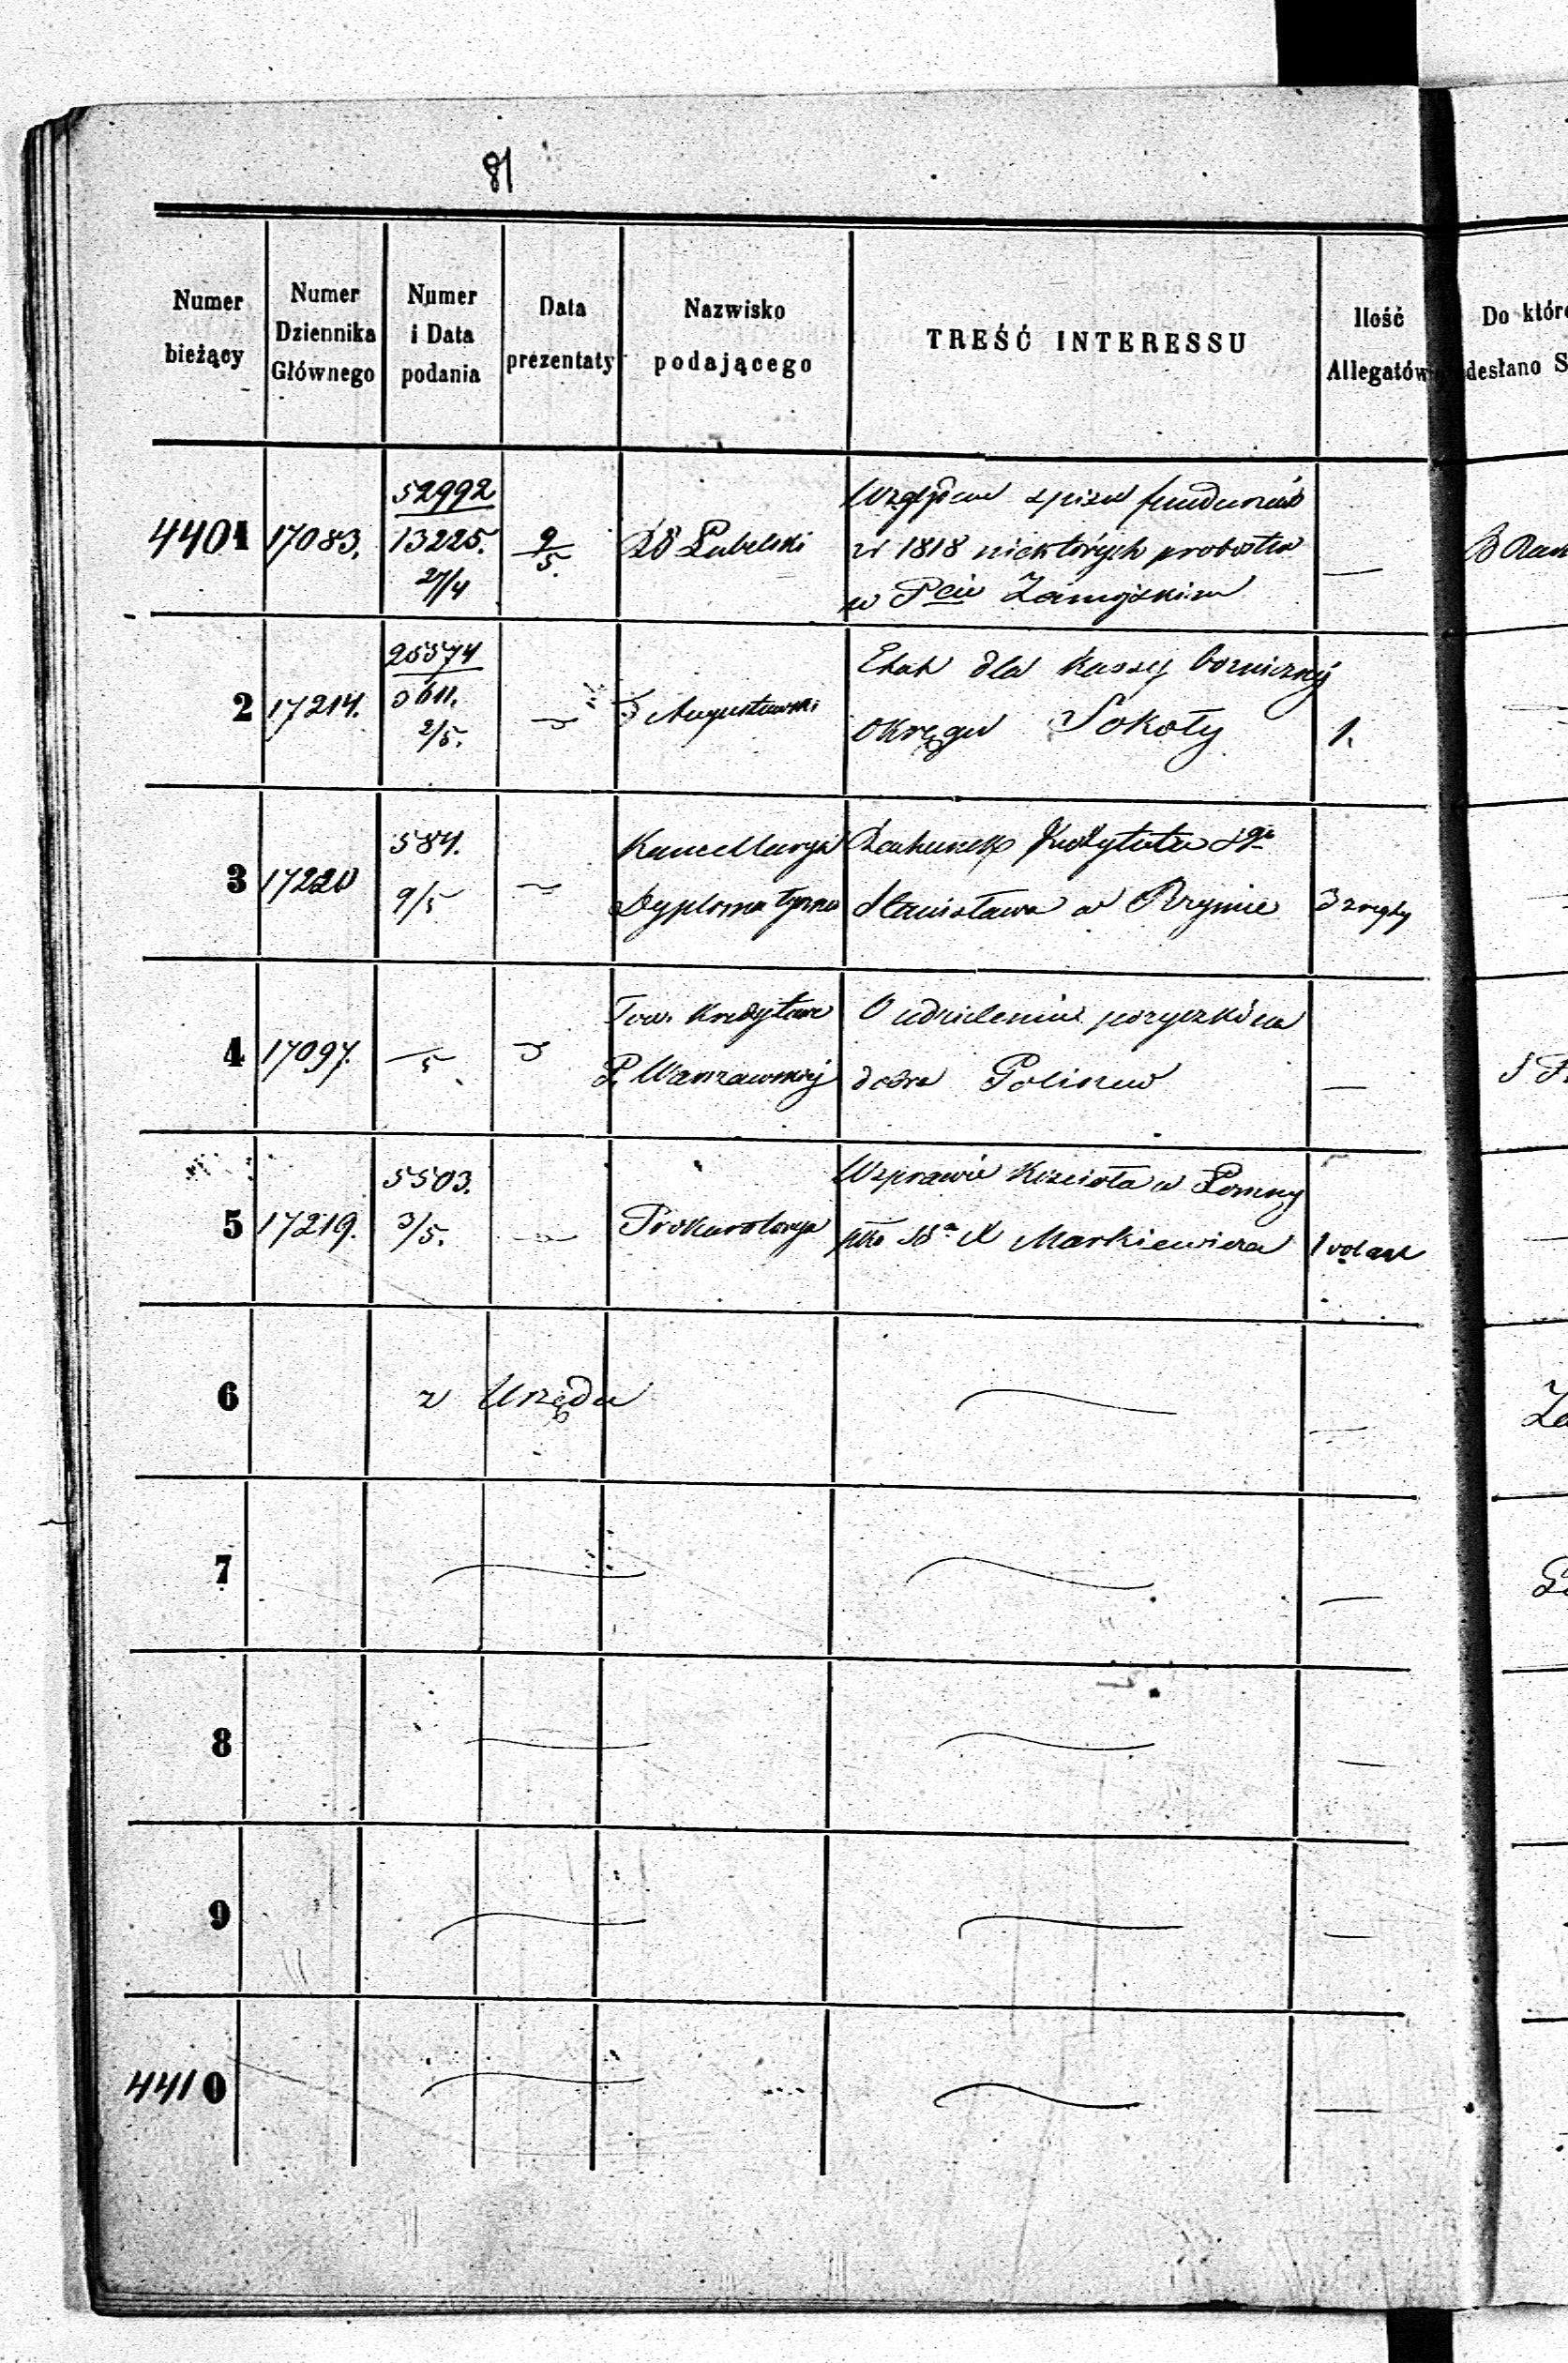 81
Numer bieżący
Numer Dziennika Głównego
Numer i Data podania
Data prezentaty
Nazwisko podającego
TREŚĆ INTERESSU
Ilość Allegatów
Do któr
desłano S
4401
17083.
52992
13225.
27/4
9/5.
Lubelski
Względem spisu funduszów
w 1818 niektórych probostw
w Pcie Zamojskim
B
2
17214.
25574
2/5.
Augustowski
Etat dla kassy bożniczny
okręgu Sokoły
1.
3
17220
584.
9/5
Kancellarya
Dyplomatyczna
Rachunek Instytutu Sgo
Stanisława w Rzymie
3
4
17097.
5
Tow. Kredytowe
P. Warszawskiej
O udzielenie pożyczki na
dobra
5
17219.
5503.
3/5.
Prokuratorya
W sprawie Kościoła w Łomny
Markiewicza
1 vol akt
6
z Urzędu
7
8
9
4410